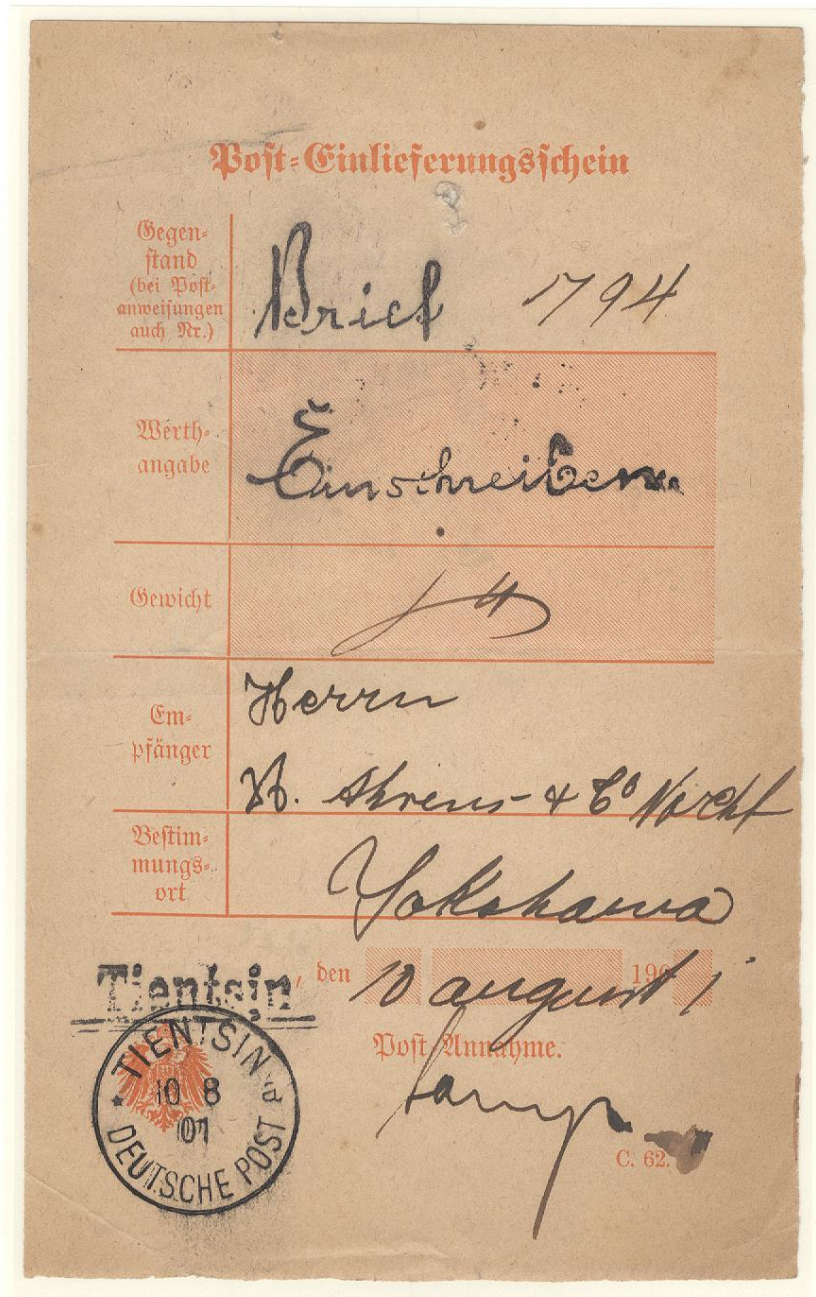 Post-Einlieferungsschein
Gegen-
stand
(bei Post-
anweisungen
auch Nr.)
Brief 1794
Werth-
angabe
Einschreiben.
Gewicht
Em-
pfänger
Herrn
H. Ahrens & Co Nachf
Bestim-
mungs-
ort
Yokohama
Tientsin, den 10 august 1901
Post-Annahme.
C. 62.
TIENTSIN
10 8
01
DEUTSCHE POST